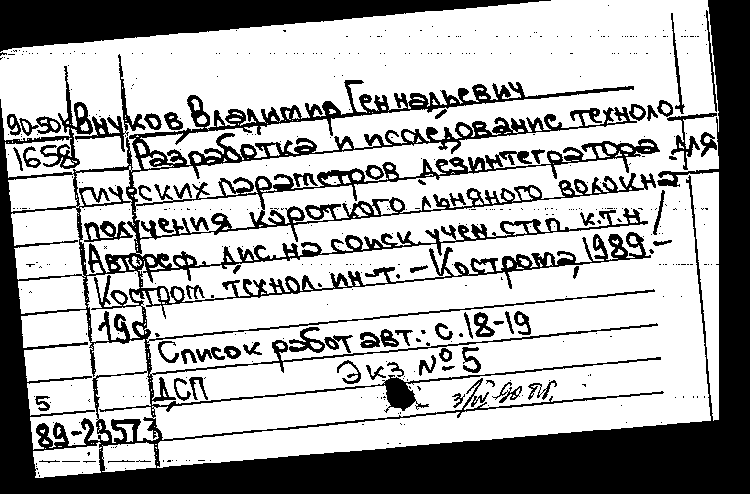 90-50к Внуков Владимир Геннадьевич
1658 Разработка и исследование техноло-
гических параметров дезинтегратора для
получения короткого льняного волокна:
Автореф. дис. на соиск. учен. степ. к.т.н. /
Костром. технол. ин-т. – Кострома, 1989. –
19с.
Список работ авт.: с.18-19
ДСП Экз №5
5
89-23573